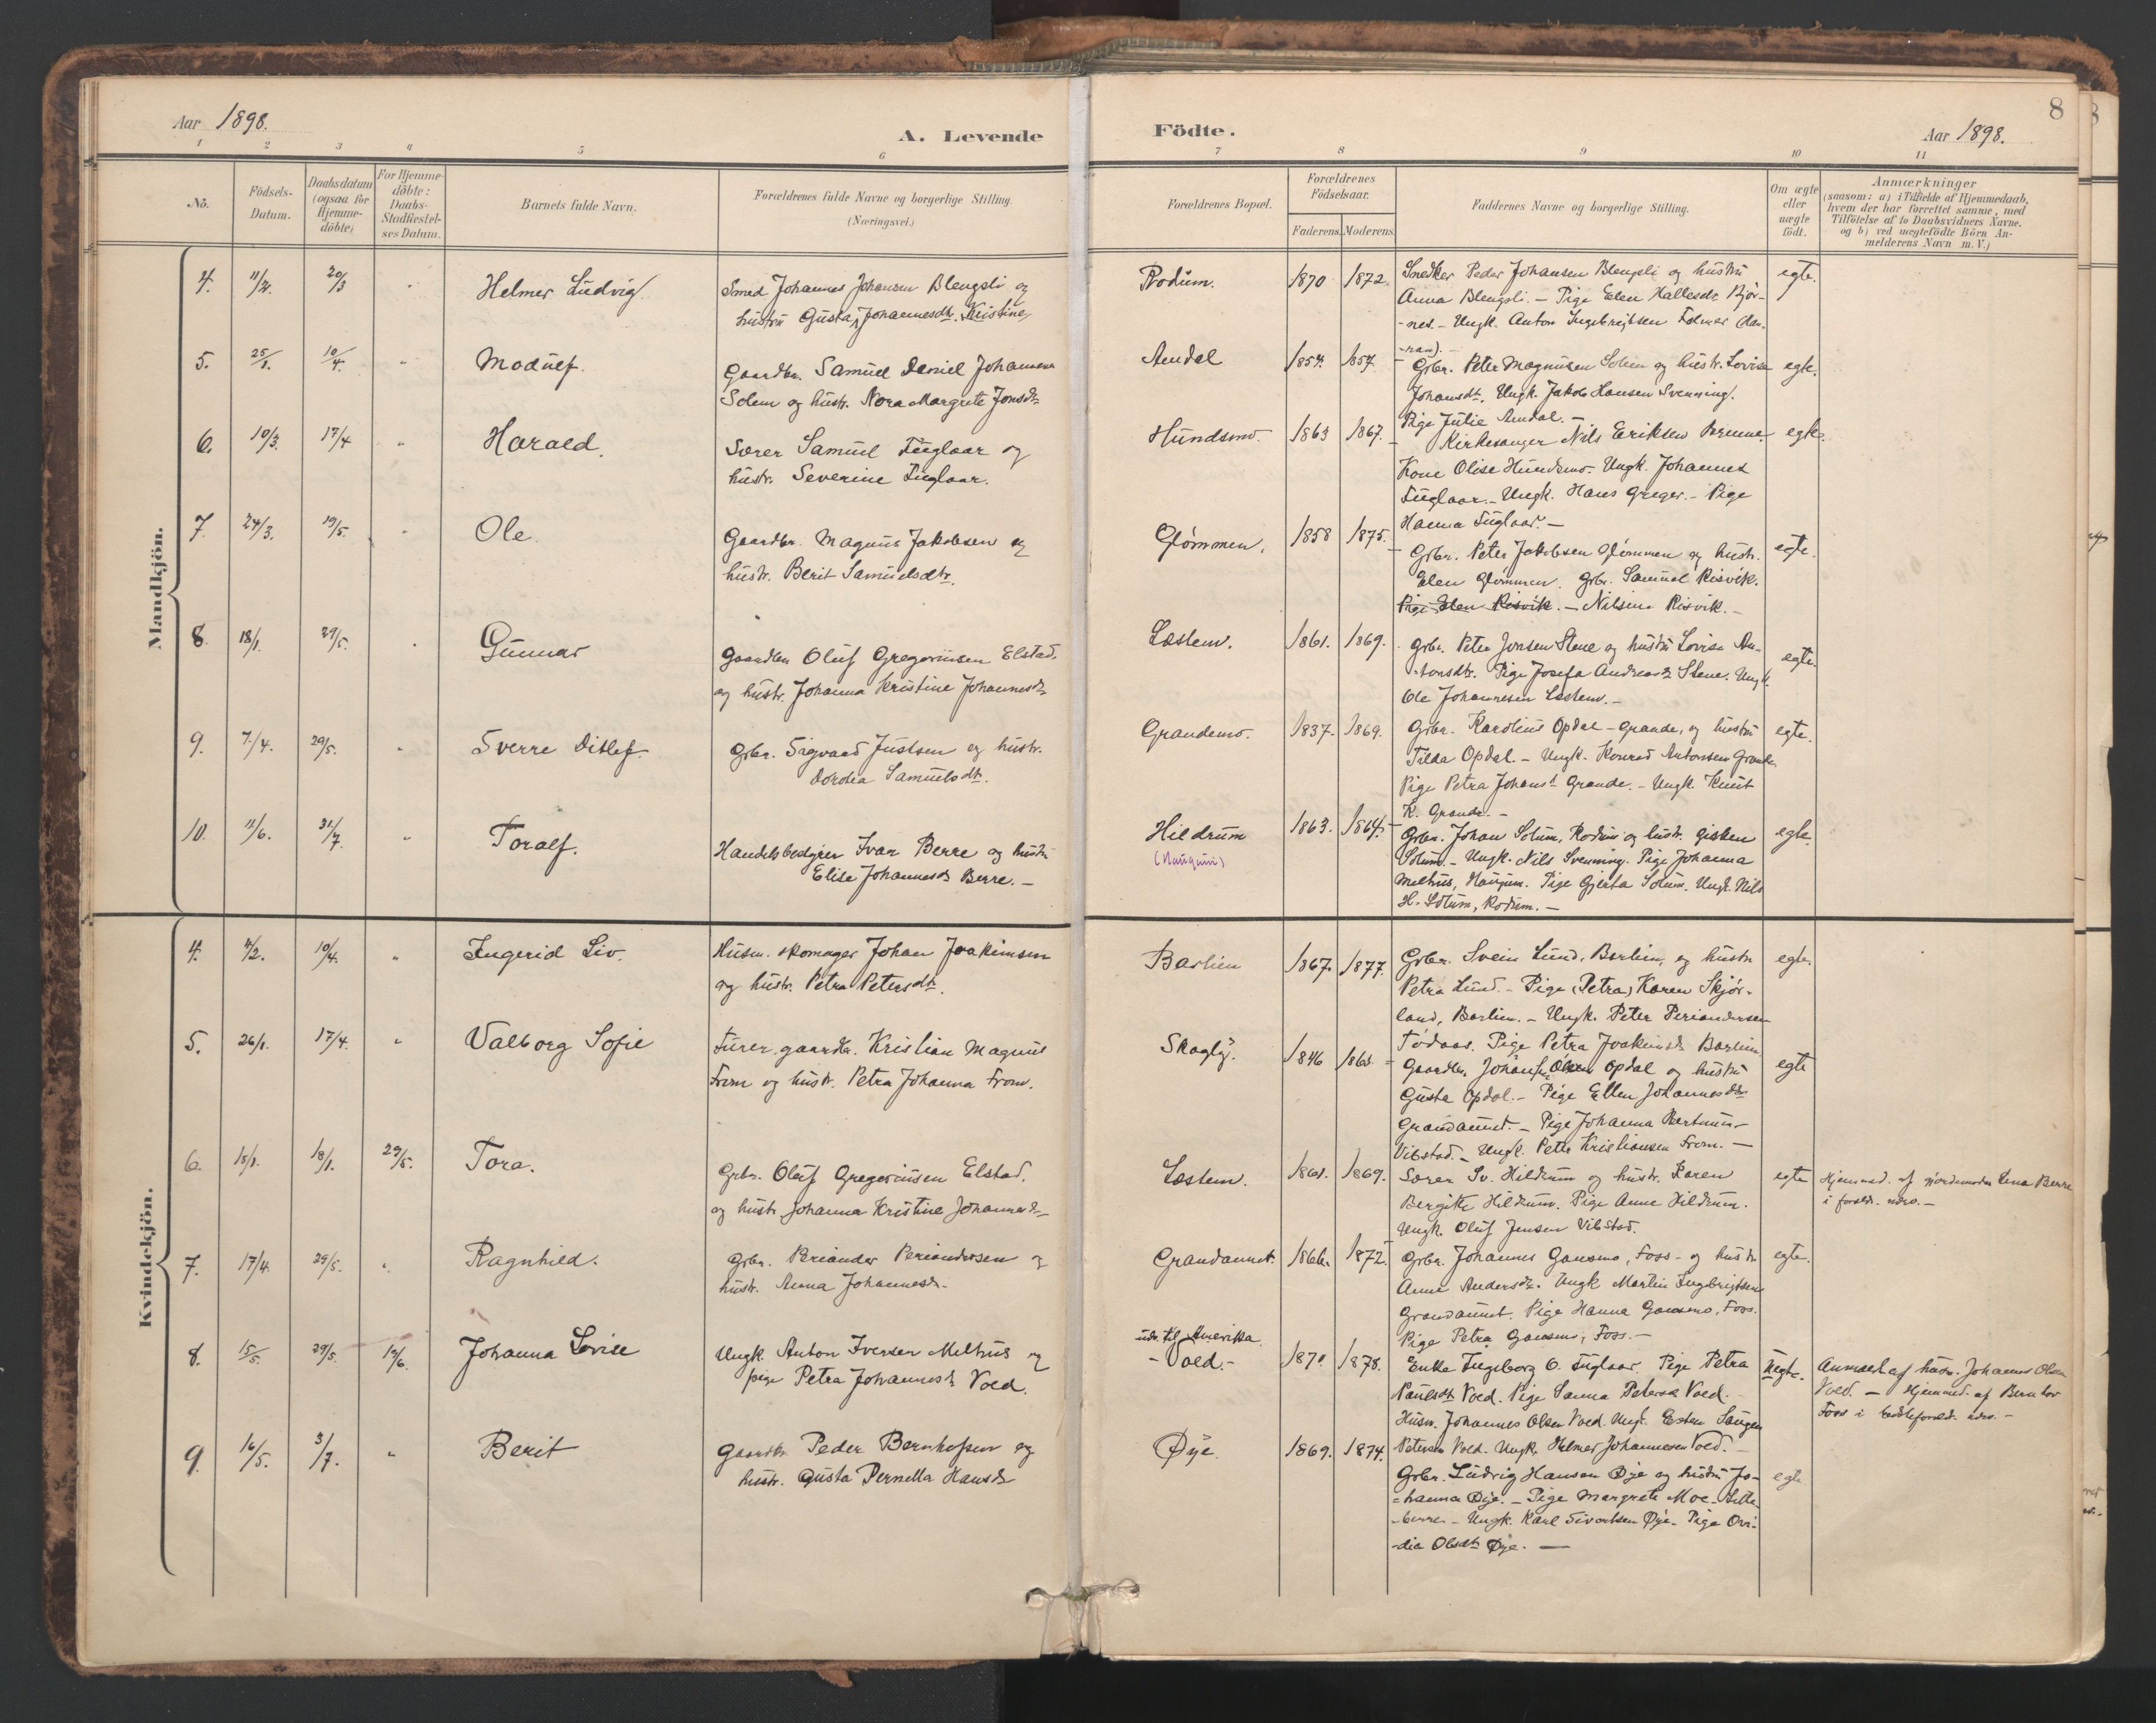 Aar 1898.
A. Levende
Födte.
Aar 1898.
8
1 2 3 4 5 6 7 8 9 10 11
No.
Födsels-
Datum.
Daabsdatum
(ogsaa for
Hjemme-
döbte)
For Hjemme-
döbte:
Daabs-
Stadfæstel-
ses Datum.
Barnets fulde Navn.
Forældrenes fulde Navne og borgerlige Stilling.
(Næringsvei.)
Forældrenes Bopæl.
Forældrenes
Födselsaar.
Faderens. Moderens.
Faddernes Navne og borgerlige Stilling.
Om ægte
eller
uægte
födt.
Anmærkninger
(saasom: a) i Tilfælde af Hjemmedaab,
hvem der har forrettet samme, med
Tilföielse af to Daabsvidners Navne.
og b) ved uægtefödte Börn An-
melderens Navn m. V.)
Mandkjön.
4. 20/3 Helmer Ludvig
Smed Johannes Johansen Blengsli og
hustru Gusta Johannesdt. Kristine
Rodum. 1870 1872.
Snedker Peder Johansen Blengsli og hustru
Anna Blengsli. - Pige Elen Hallesdt Björ-
nes. - Ungk. Anton Ingebrigtsen
egte.
5. 25/1. 10/4. Modulf.
Gaardbr. Samuel Daniel Johansen
Solem og hustr. Nora Margrete Jonsdt
Amdal 1854. 1857.
Grbr. Peter Magnusen Solem og hustr. Lovise
Johansdt. Ungk. Jakob Hansen Svenning.
Pige Julie Amdal. -
egte.
6. 10/3. 17/4 Harald.
Sören Samuel Fuglaar og
hustr. Severine Fuglaar.
Hundsmo. 1863 1867.
Kirkesanger Nils Eriksen
Kone Olise Hundsmo. Ungk. Johannes
Fuglaar. - Ungk. Hans Greger. - Pige
Hanna Fuglaar. -
egte.
7. 24/3. 19/5. Ole.
Gaardbr. Magnus Jakobsen og
hustr. Berit Samuelsdtr.
Glömmen. 1858 1875.
Grbr. Peter Jakobsen Glömmen og hustr.
Elen Glömmen. Grbr. Samuel Risvik.
Pige Elen Risvik. - Nilsine Risvik. -
egte.
8. 18/1. 29/5. Gunnar
Gaardbr Oluf Gregoriusen Elstad.
og hustr. Johanna Kristine Johannesdt
Læstem. 1861. 1869.
Grbr. Peter Jonsen Stene og hustru Lovise An-
tonsdtr. Pige Josefa Andreasdt Stene. Ungk.
Ole Johannesen Læstem. -
egte.
9. 7/4. 29/5. Sverre Ditlef.
Grbr. Sigvard Justsen og hustr.
Dordea Samuelsdt.
Grandemo. 1837. 1869.
Grbr. Karolius Opdal - Grande, og hustru
Tilda Opdal. - Ungk. Konrad Antonsen Grande.
Pige Petra Johansdt Grande. - Ungk. Knut
K. Grande. -
egte.
10. 11/6. 31/7. Toralf.
Handelsbetjen Ivar Berre og hustru
Elise Johannesdt Berre. -
Hildrum
(Haugum)
1863. 1864.
Grbr. Johan Solum, Rodum og hustr. Gisken
Solum. - Ungk. Nils Svenning. Pige Johanna
Melhus, Haugum. Pige Gjerta Solum. Ungk. Nils
H. Solum, Rodum. -
egte.
Kvindekjön.
4. 4/2. 10/4. Ingerid Liv.
Husm. skomager Johan Joakimsen
og hustr. Petra Petersdt.
Barlien 1867. 1877.
Grbr. Svein Lund, Barlien, og hustr
Petra Lund. - Pige (Petra) Karen Skjör-
land, Barlien. - Ungk. Peter Periandersen
Tödaas. Pige Petra Joakimsdt Barlien.
egte.
5. 26/1. 17/4. Valborg Sofie
Furer, gaardbr. Kristian Magnus
From og hustr. Petra Johanna From.
Skogly. 1846
Gaardbr. Johan Olsen Opdal og hustru
Gusta Opdal. - Pige Ellen Johannesdtr
Grandaunet. - Pige Johanna
Vibstad. - Ungk. Peter Kristiansen From. -
egte
6. 18/1. 18/1. 29/5. Tora.
Grbr. Oluf Gregoriusen Elstad.
og hustr Johanna Kristine Johannesdt
Læstem. 1861. 1869.
Sören Sv. Hildrum og hustr. Karen
Bergitte Hildrum. Pige Anne Hildrum.
Ungk. Oluf Jensen Vibstad.
egte
Hjemmed. af jordemoder Lena Berre
i foræld. nærv. -
7. 17/4. 29/5. Ragnhild.
Grbr. Periander Periandersen og
hustr. Anna Johannesdt.
Grandaunet. 1866. 1872.
Grbr. Johannes Gansmo, Foss - og hustr
Anne Andersdt. Ungk Martin Ingebrigtsen
Grandaunet. Pige Hanna Gansmo, Foss.
Pige Petra Gansmo, Foss. -
egte.
8. 15/5. 29/5. 19/6. Johanna Lovise
Ungk. Anton Iversen Melhus og
pige Petra Johannesdt Voed.
udv. til Amerika.
- Voed. -
187 1878.
Enke Ingeborg O. Fuglaar. Pige Petra
Paulsdt Voed. Pige Sanna Petersdt Voed. -
Husm. Johannes Olsen Voed. Ungk. Esten
Petersen Voed. Ungk. Helmer Johannesen Voed. -
Uegte.
Anmeldt af husm. Johannes Olsen
Voed. - Hjemmed. af Berntor
Foss i nærv. -
9. 16/5. 3/7. Berit
Gaardbr. Peder Bernhofsen og
hustr. Gusta Pernella Hansdt
Øye. 1869. 1874.
Grbr. Ludvig Hansen Øye og hustru Jo-
=hanna Øye. - Pige Margrete Moe -
- Ungk. Karl Sivertsen Øye - Pige Ovi-
-dia Olsdt Øye. -
egte